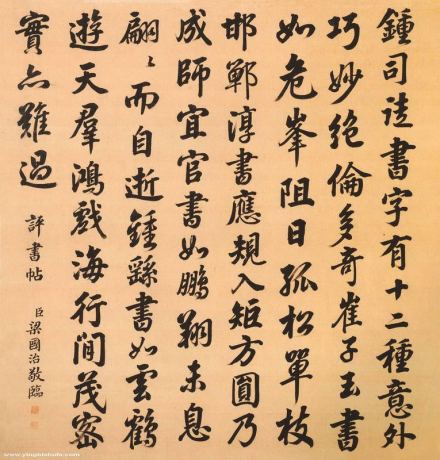 鍾司徒書字有十二種意外
巧妙絕倫多奇崔子玉書
如危峯阻日孤松單枝
邯鄲淳書應規入矩方圓乃
成師宜官書如鵬翔未息
翩〻而自逝鍾繇書如雲鶴
遊天羣鴻戲海行間茂密
實亦難過
評書帖
臣梁國治敬臨
www.yingbishufa.com